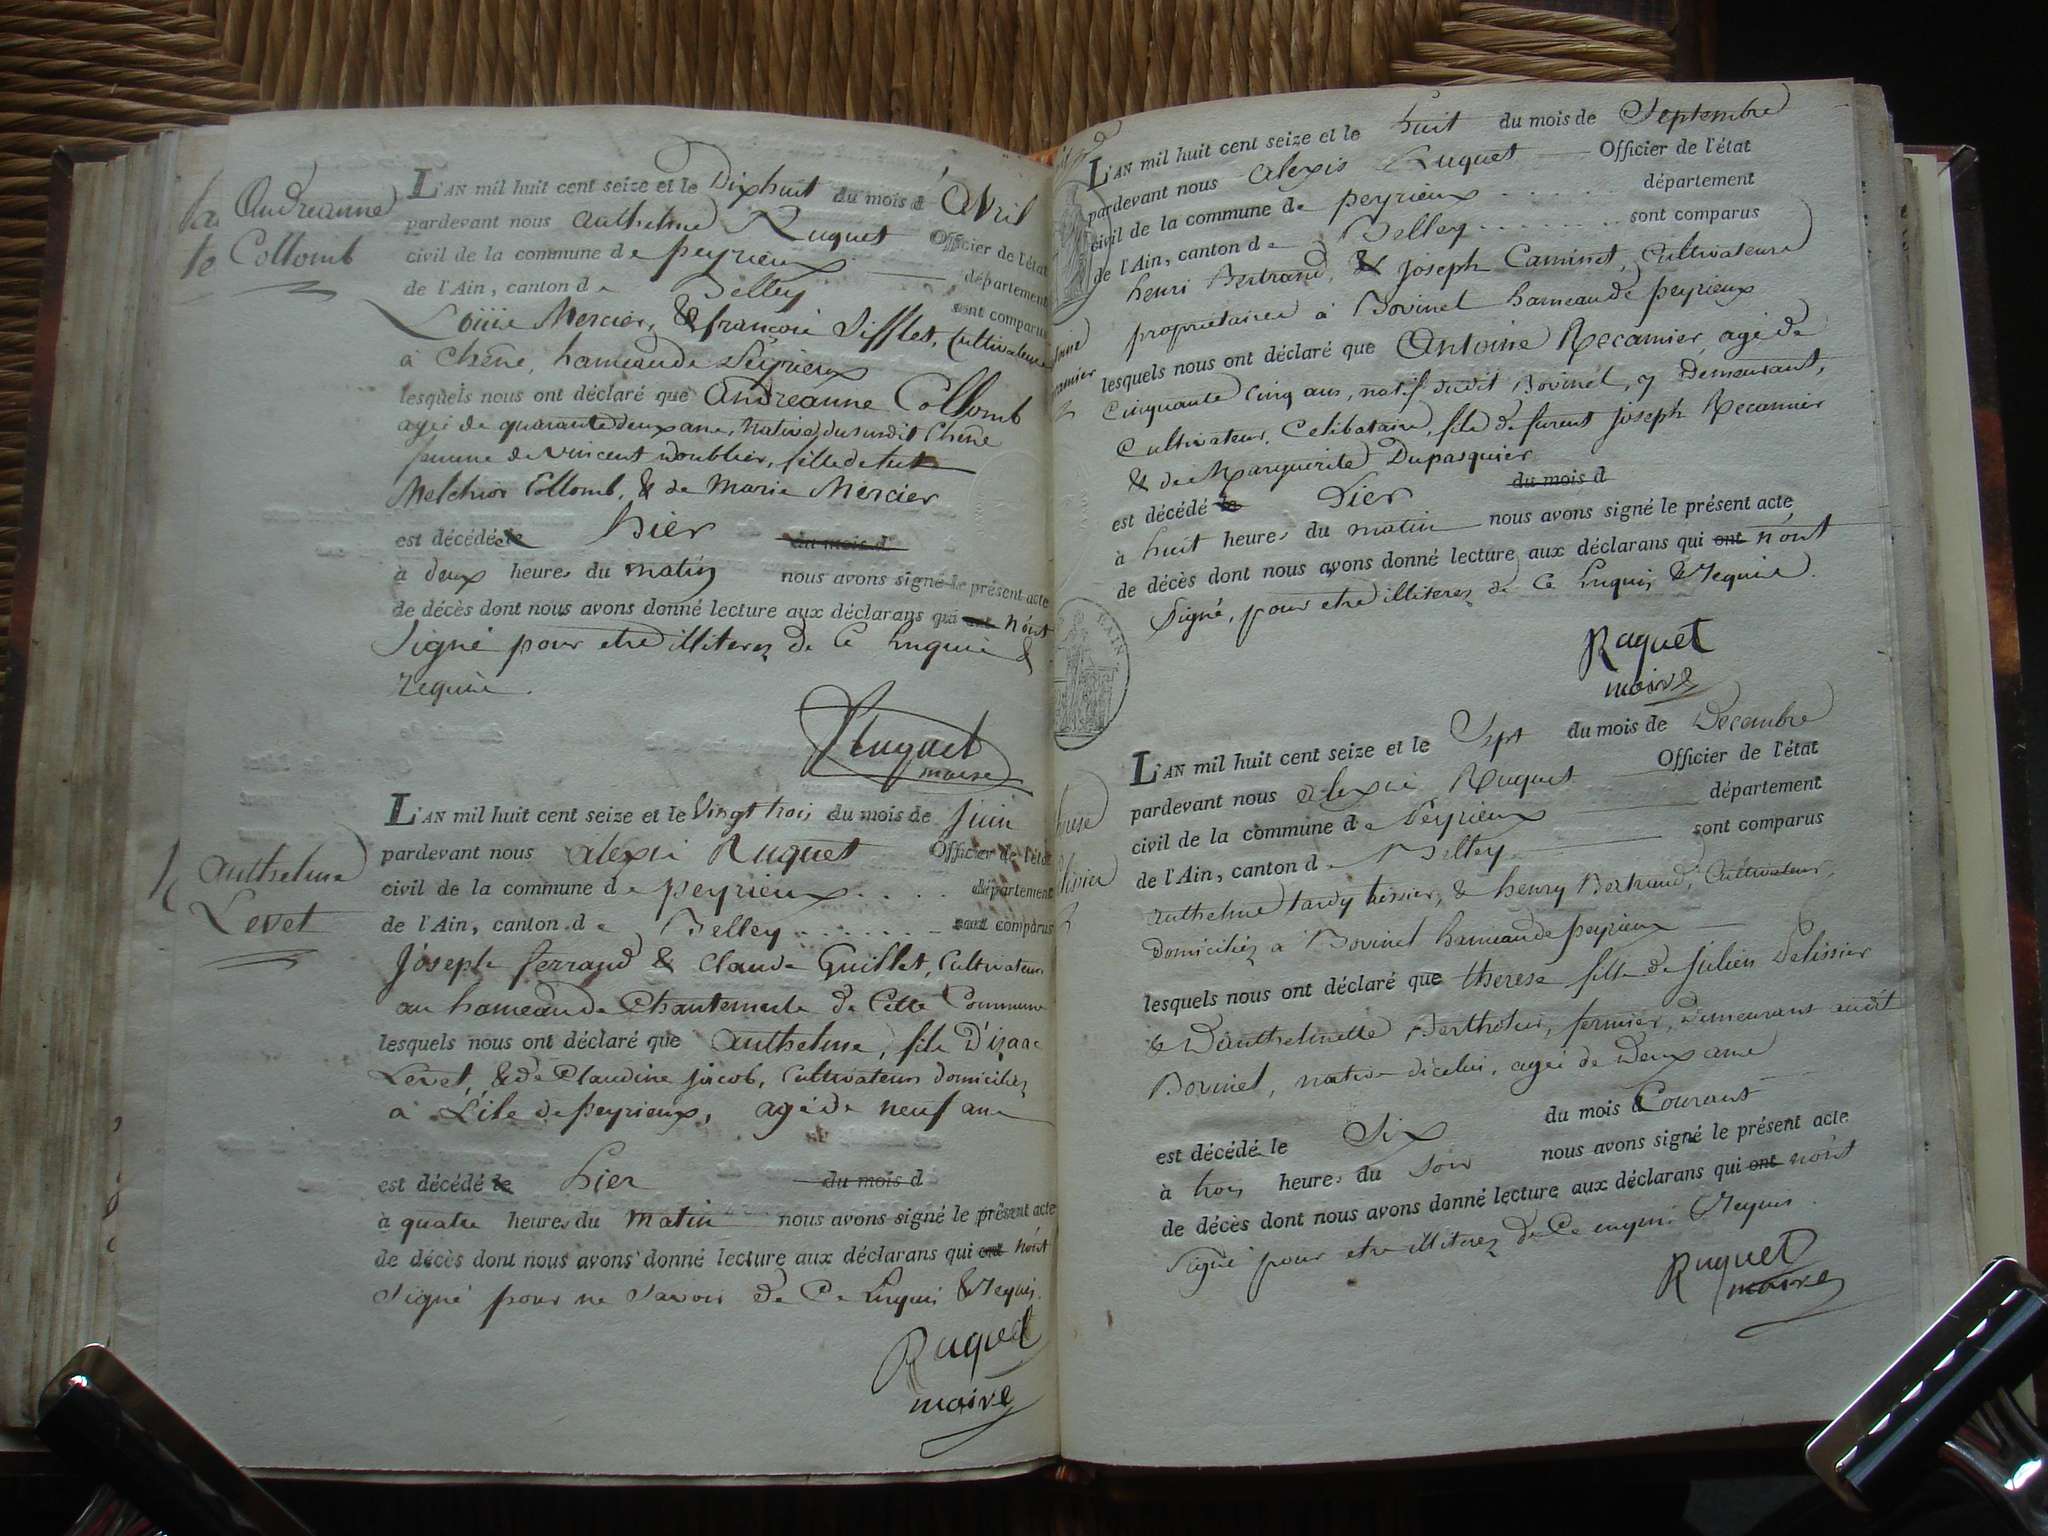 Andreanne
Collomb
L'AN mil huit cent seize et le Dixhuit du mois d'Avril
pardevant nous anthelme Ruquet Officier de l'état
civil de la commune de peyrieux département
de l'Ain, canton de Belley sont comparus
Louis Mercier, & françois Sifflet, Cultivateurs
à Chêne, hameau de Peyrieux
lesquels nous ont déclaré que Andreanne Collomb
agée de quarante deux ans, native dususdit Chêne
femme de vincent , fille de fut
Melchior Collomb, & de Marie Mercier
est décédée le hier du mois d
à deux heures du matin nous avons signé le présent acte
de décès dont nous avons donné lecture aux déclarans qui ont n'ont
signé pour etre illiterez de ce Enquis &
requis.
Ruquet
maire
anthelme
Levet
L'AN mil huit cent seize et le Vingt trois du mois de juin
pardevant nous alexis Ruquet Officier de l'état
civil de la commune de peyrieux département
de l'Ain, canton de Belley sont comparus
Joseph ferrand & Claude Guillet, Cultivateurs
au hameau de Chantemerle de Cette Commune
lesquels nous ont déclaré que anthelme, fils D'isaac
Levet, & de Claudine jacob, Cultivateurs domiciliez
à L'ile de peyrieux, agé de neuf ans
est décédé le hier du mois d
à quatre heures du matin nous avons signé le présent acte
de décès dont nous avons donné lecture aux déclarans qui ont n'ont
signé pour ne savoir de Ce Enquis & requis.
Ruquet
maire
L'AN mil huit cent seize et le huit du mois de Septembre
pardevant nous alexis Ruquet Officier de l'état
civil de la commune de peyrieux département
de l'Ain, canton de Belley sont comparus
henri Bertrand, & joseph Caminet, Cultivateurs
propriétaires à Bovinel hameau de peyrieux
lesquels nous ont déclaré que Antoine Recamier, agé de
Cinquante Cinq ans, natif dudit Bovinel, y Demeurant,
Cultivateur, Celibataire, fils de furent joseph Recamier
& de Marguerite Dupasquier
est décédé le hier du mois d
à huit heures du matin nous avons signé le présent acte
de décès dont nous avons donné lecture aux déclarans qui ont n'ont
Signé, pour etre illiterez de Ce Enquis & requis.
Ruquet
maire
AIN
L'AN mil huit cent seize et le Sept du mois de Decembre
pardevant nous alexis Ruquet Officier de l'état
civil de la commune de Peyrieux département
de l'Ain, canton de Belley sont comparus
anthelme tardy tissier, & henry Bertrand, Cultivateur,
domiciliez à Bovinel hameau de peyrieux
lesquels nous ont déclaré que therese fille de julien Pelissier
& D'anthelmette , fermier, demeurant audit
Bovinel, native dicelui, agée de Deux ans
est décédée le Six du mois d Courant
à trois heures du soir nous avons signé le présent acte
de décès dont nous avons donné lecture aux déclarans qui ont n'ont
signé pour etre illiterez de Ce enquis & requis.
Ruquet
maire